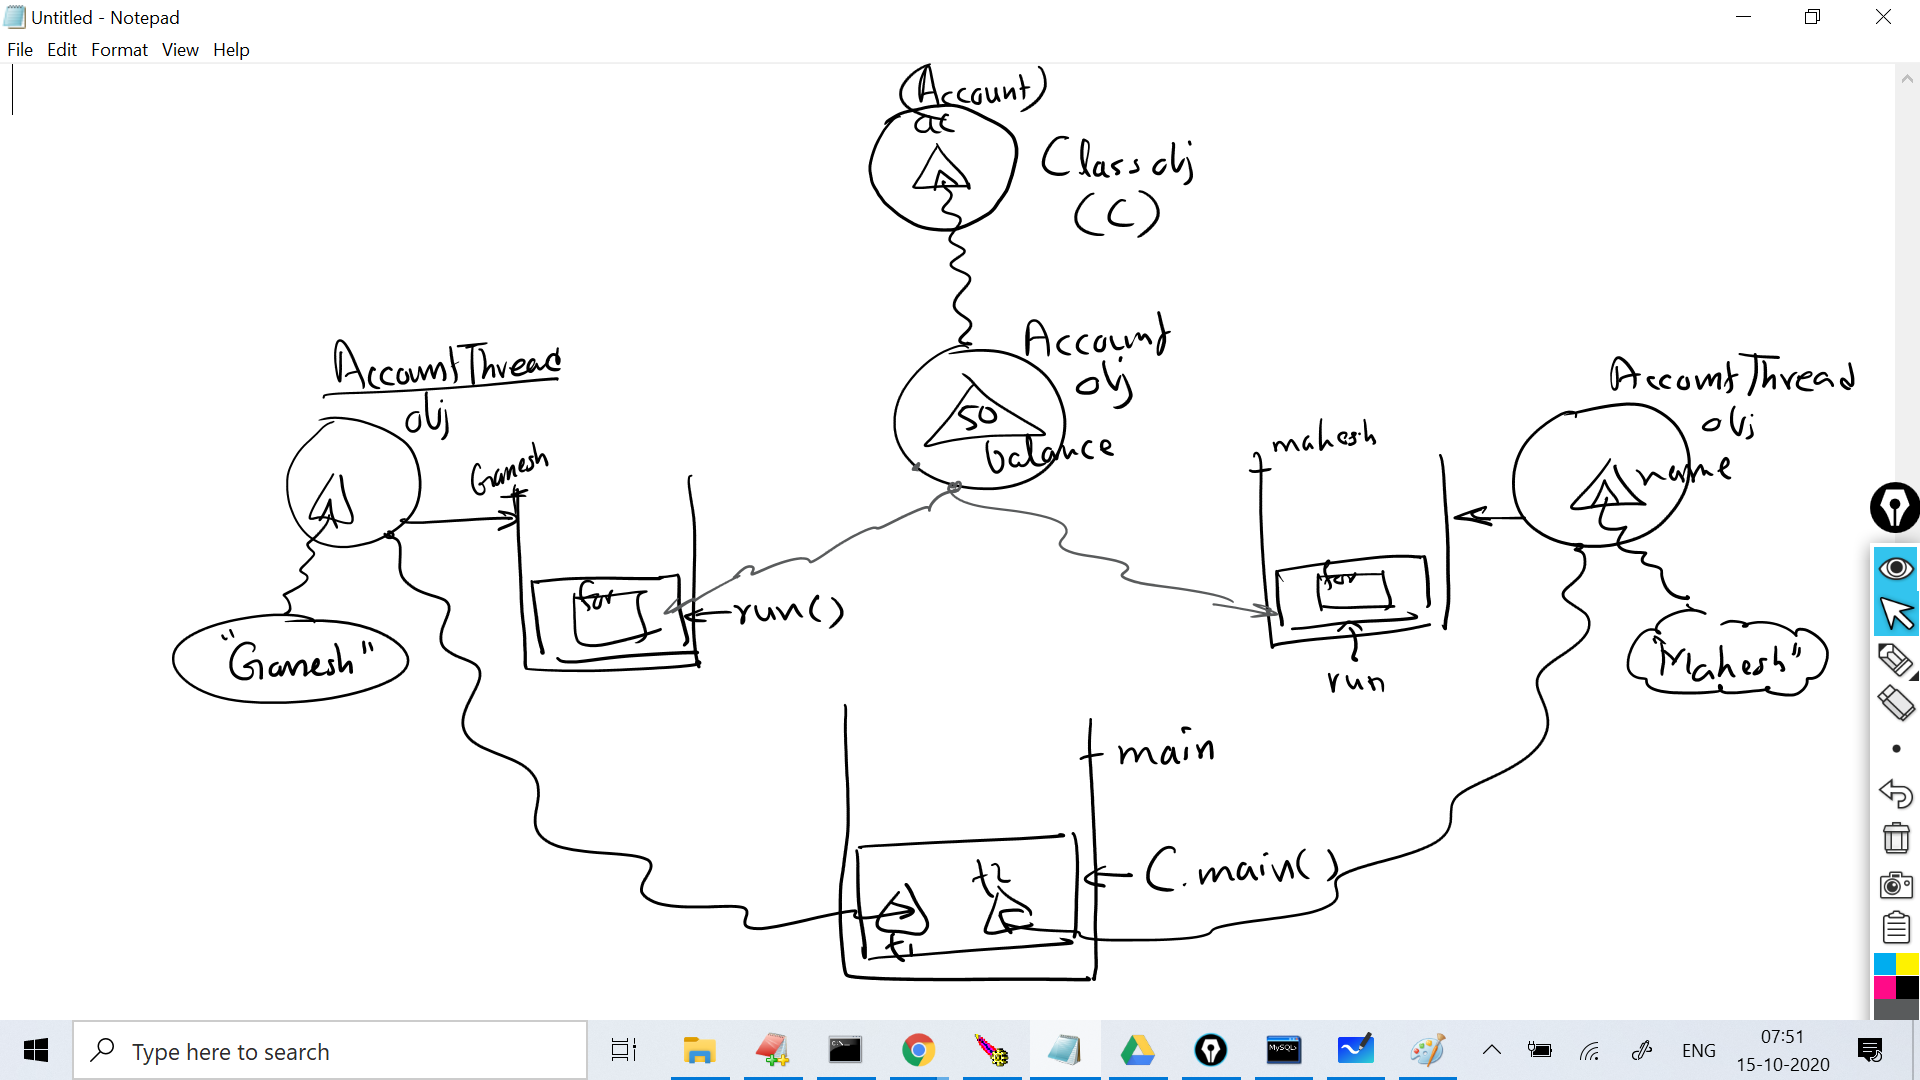 Untitled - Notepad
File Edit Format View Help
(Account)
ac
Class obj
(C)
Account
obj
50
balance
AccountThread
obj
Ganesh
for
run()
"Ganesh"
mahesh
for
run
AccountThread
obj
name
"Mahesh"
main
C.main()
t2
t1
Type here to search
C:\_
MySQL
ENG
07:51
15-10-2020